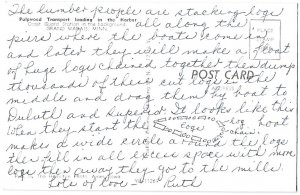 The lumber people are stacking logs
Pulpwood Transport loading in the Harbor
all along the
Coast Guard Station in the background
GRAND MARAIS, MINN.
piers before the boats come in
and later they will make a float
of huge logs chained together then dump
thousands of their cut logs in the
POST CARD
middle and drag them by boat to
Duluth and Superior. It looks like this
When they start the
logs
boat
log
chain
makes a wide circle around the logs
then fill in all excess space with more
logs then away they go to the mills
Lots of love Ruth